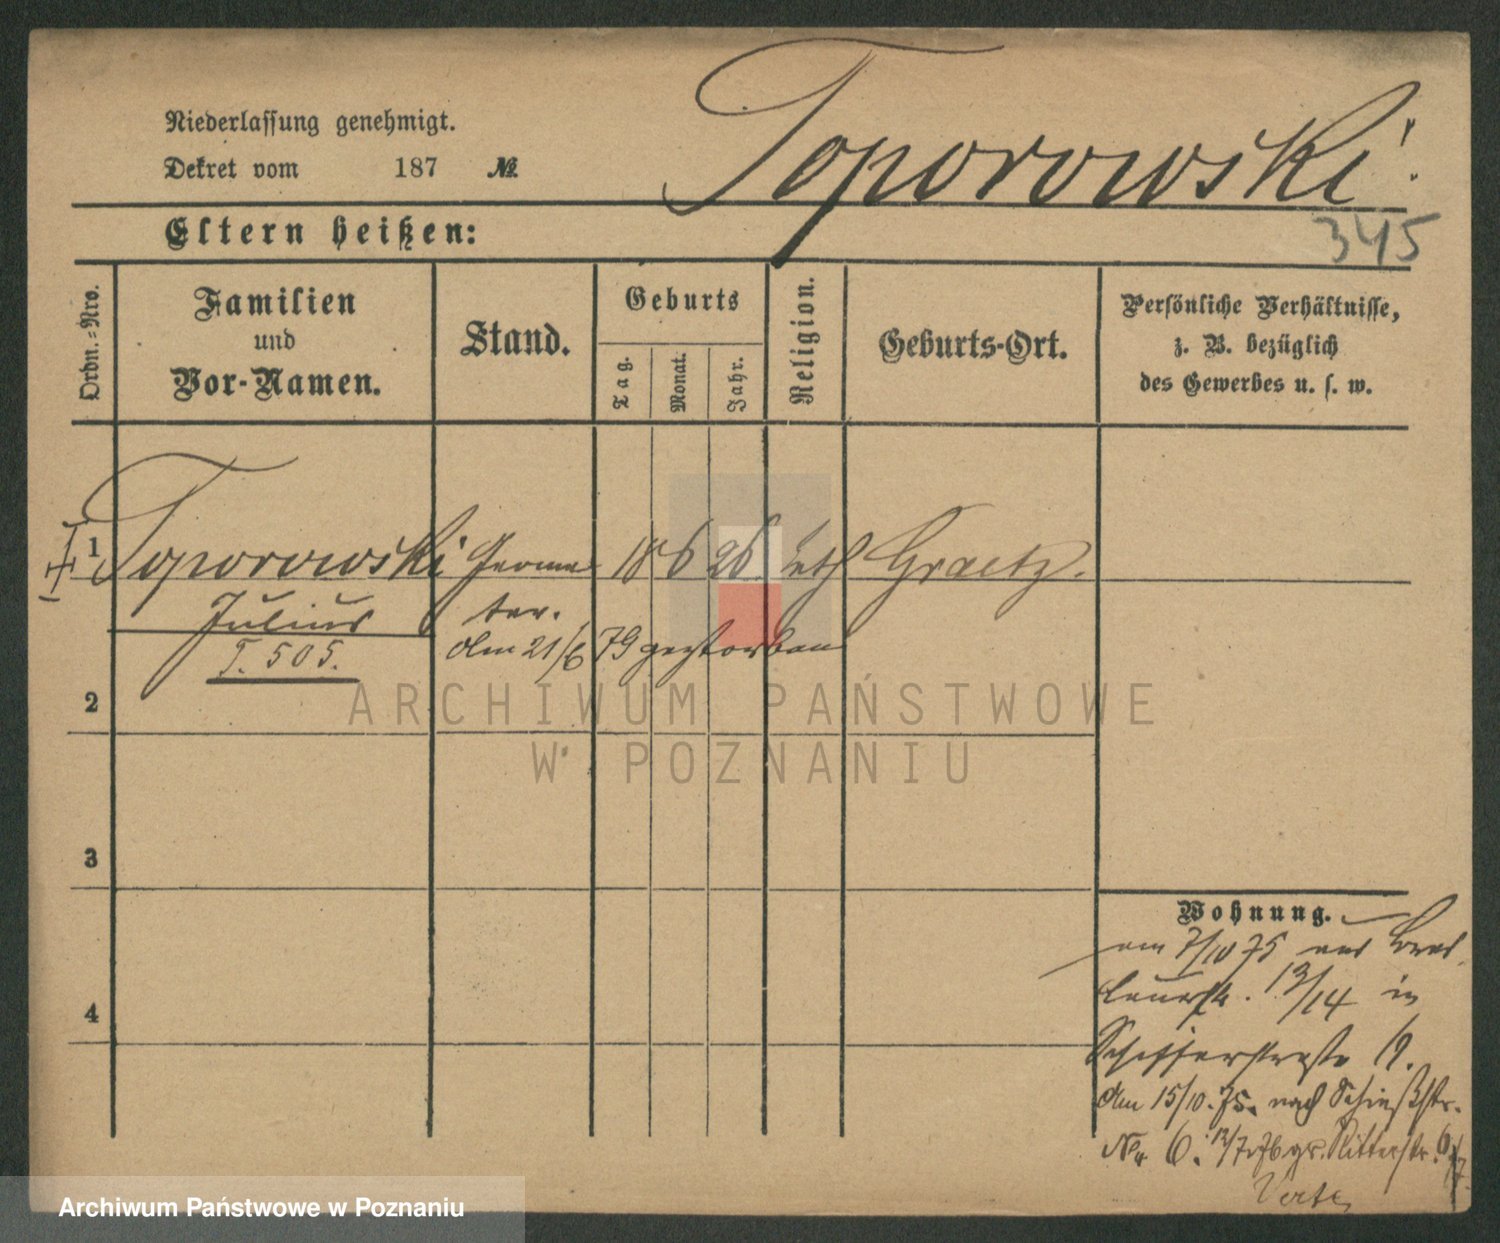 Toporowski
Niederlassung genehmigt.
Dekret vom 187 №
345
Eltern heißen:
Ordn.=Nro.
Familien
und
Vor-Namen.
Stand.
Geburts
Tag.
Monat.
Jahr.
Religion.
Geburts-Ort.
Persönliche Verhältnisse,
z. B. bezüglich
des Gewerbes u. s. w.
1 Toporowski 18 6 26 kth Graetz.
Julius
T. 505.
den 21/6 79 gestorben
2
3
4
ARCHIWUM PAŃSTWOWE
W POZNANIU
Wohnung.
am 7/10 75 aus Bres
lauerstr. 13/14 in
Schifferstraße 19.
den 15/10. 75. nach Schießstr.
No. 6. 12/7 76 gr. Ritterstr.
Verte
Archiwum Państwowe w Poznaniu